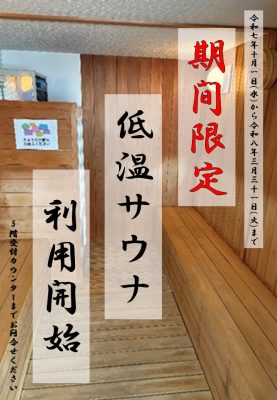 令和七年十月一日(水)から令和八年三月三十一日(火)まで
期間限定
低温サウナ
利用開始
5階受付カウンターまでお問合せください